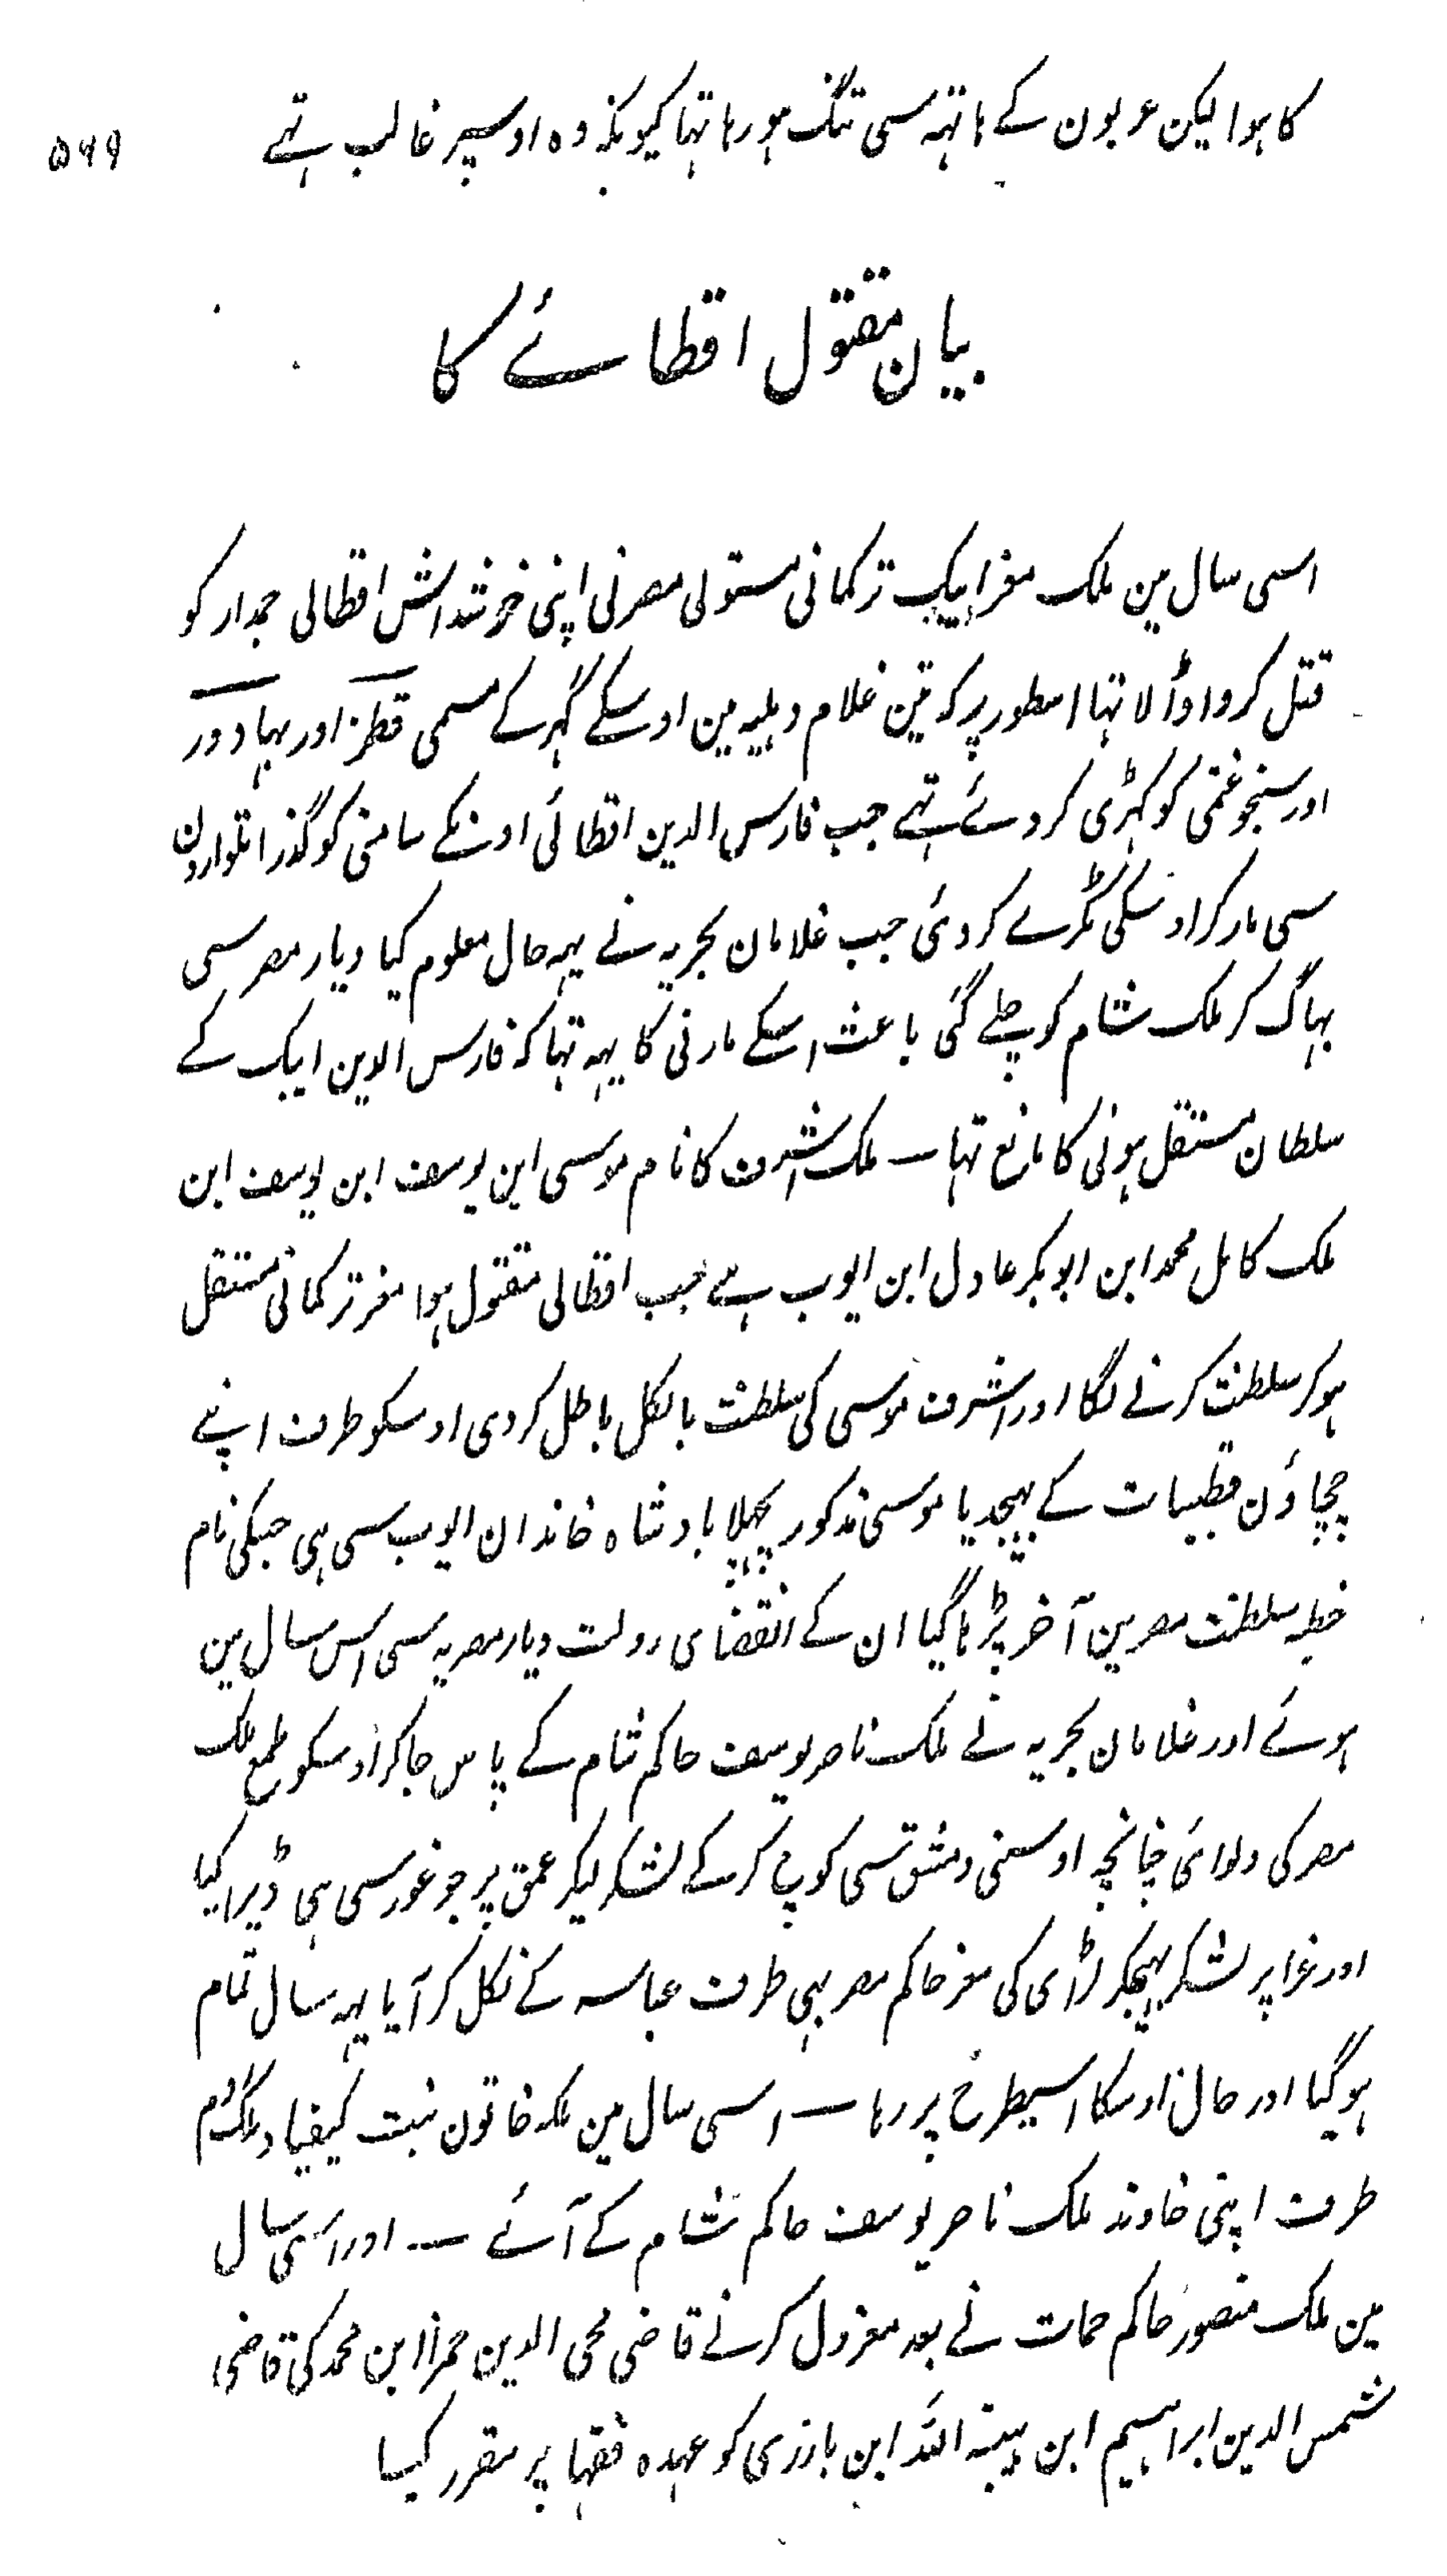 کا ہوا لیکن عربون کے ہاتہہ سی تنگ ہو رہا تہا کیونکہ وہ اوسپر غالب تہے
۵۶۹
بیان مقتول اقطائے کا
اسی سال مین ملک معز ایبک ترکمانی مستولی مصر نی اپنی خوشداش اقطالی جمدار کو
قتل کروا ڈالا تہا اسطور پر کہ تین غلام دہلیہ مین اوسکے گہر کے مسمی قطز اور بہادور
اور سنجو غتمی کو کہڑی کر دئے تہے جب فارس الدین اقطائی اونکے سامنی کو گذرا تلوارون
سی مار کر اوسکی ٹکڑے کر دئی جب غلامان بحریہ نے یہہ حال معلوم کیا دیار مصر سی
بہاگ کر ملک شام کو چلے گئی باعث اسکے مارنی کا یہہ تہا کہ فارس الدین ایبک کے
سلطان مستقل ہونی کا مانع تہا — ملک اشرف کا نام موسی ابن یوسف ابن یوسف ابن
ملک کامل محمد ابن ابوبکر عادل ابن ایوب ہے جب اقطالی مقتول ہوا معز ترکمانی مستقل
ہو کر سلطنت کرنے لگا اور اشرف موسی کی سلطنت بالکل باطل کر دی اوسکو طرف اپنے
چچاؤن قطبیات کے بہیجدیا موسی مذکور پچہلا بادشاہ خاندان ایوب سی ہی جسکی نام
خطبہ سلطنت مصر مین آخر پڑہا گیا ان کے انقضای دولت دیار مصریہ سی اس سال مین
ہوئے اور غلامان بحریہ نے ملک ناصر یوسف حاکم شام کے پاس جا کر اوسکو طمع ملک
مصر کی دلوائی چنانچہ اوسنی دمشق سی کوچ کرکے لشکر لیکر عمق پر جو غور سی ہی ڈیرا کیا
اور غزا پر لشکر بہیجکر لڑای کی معز حاکم مصر بہی طرف عباسہ کے نکل کر آیا یہہ سال تمام
ہو گیا اور حال اوسکا اسیطرح پر رہا — اسی سال مین ملکہ خاتون بنت کیقباد ملک روم
طرف اپنی خاوند ملک ناصر یوسف حاکم شام کے آئے — اور اسی سال
مین ملک منصور حاکم حمات نے بعد معزول کرنے قاضی محی الدین حمزا ابن محمد کی قاضی
شمس الدین ابراہیم ابن ہیبتہ اللہ ابن بارزی کو عہدہ فقہا پر مقرر کیا